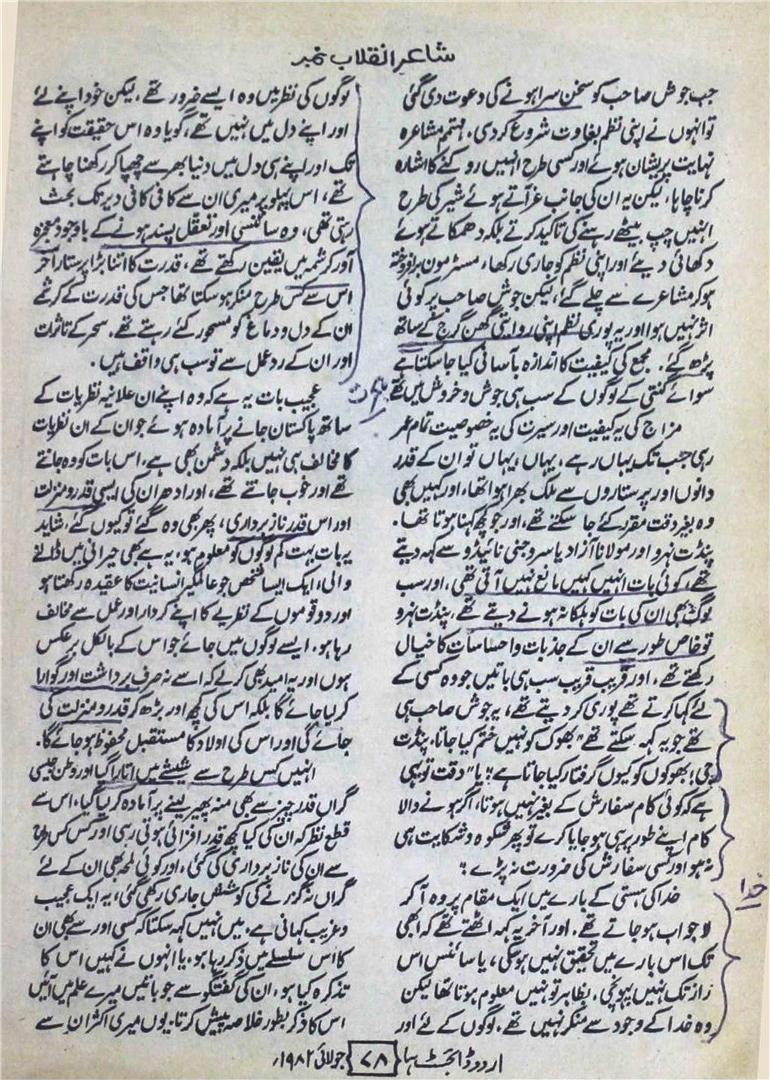 شاعرِ انقلاب نمبر
جب جوش صاحب کو سخن سرا ہونے کی دعوت دی گئی
تو انہوں نے اپنی نظم بغاوت شروع کردی. مہتمم مشاعرہ
نہایت پریشان ہوئے اور کسی طرح انہیں روکنے کا اشارہ
کرنا چاہا، لیکن یہ ان کی جانب غرّاتے ہوئے شیر کی طرح
انہیں چپ بیٹھے رہنے کی تاکید کرتے بلکہ دھمکاتے ہوئے
دکھائی دیئے اور اپنی نظم کو جاری رکھا، مسٹر مون برافروختہ
ہوکر مشاعرے سے چلے گئے، لیکن جوش صاحب پر کوئی
اثر نہیں ہوا اور یہ پوری نظم اپنی روایتی گھن گرج کے ساتھ
پڑھ گئے. مجمع کی کیفیت کا اندازہ بآسانی کیا جاسکتا ہے
سوائے گنتی کے لوگوں کے سب ہی جوش و خروش میں تھے
مزاج کی یہ کیفیت اور سیرت کی یہ خصوصیت تمام عمر
رہی جب تک یہاں رہے، یہاں، یہاں تو ان کے قدر
دانوں اور پرستاروں سے ملک بھرا ہوا تھا، اور کہیں بھی
وہ بغیر وقت مقرر کئے جا سکتے تھے، اور جو کچھ کہنا ہوتا تھا.
پنڈت نہرو اور مولانا آزاد یا سروجنی نائیڈو سے کہہ دیتے
تھے، کوئی بات انہیں کہیں مانع نہیں آتی تھی، اور سب
لوگ بھی ان کی بات کو ہلکا نہ ہونے دیتے تھے، پنڈت نہرو
تو خاص طور سے ان کے جذبات و احساسات کا خیال
رکھتے تھے، اور قریب قریب سب ہی باتیں جو وہ کسی کے
لئے کہا کرتے تھے پوری کر دیتے تھے، یہ جوش صاحب ہی
تھے جو یہ کہہ سکتے تھے "بھوک کو نہیں ختم کیا جاتا، پنڈت
جی؛ بھوکوں کو کیوں گرفتار کیا جاتا ہے؛ یا" دقت تو یہی
ہے کہ کوئی کام سفارش کے بغیر نہیں ہوتا، اگر ہونے والا
کام اپنے طور پر ہی ہوجایا کرے تو پھر شکوہ و شکایت ہی
نہ ہو اور کسی سفارش کی ضرورت نہ پڑے"
خدا کی ہستی کے بارے میں ایک مقام پر وہ آ کر
لاجواب ہوجاتے تھے، اور آخر یہ کہہ اٹھتے تھے کہ ابھی
تک اس بارے میں تحقیق نہیں ہوسکی، یا سائنس اس
راز تک نہیں پہونچی، بظاہر تو نہیں معلوم ہوتا تھا لیکن
وہ خدا کے وجود سے منکر نہیں تھے، لوگوں کے لئے اور
خدا
لوگوں کی نظر میں وہ ایسے ضرور تھے، لیکن خود اپنے لئے
اور اپنے دل میں نہیں تھے، گویا وہ اس حقیقت کو اپنے
تک اور اپنے ہی دل میں دنیا بھر سے چھپا کر رکھنا چاہتے
تھے، اس پہلو پر میری ان سے کافی کافی دیر تک بحث
رہتی تھی، وہ سائنسی اور تعقل پسند ہونے کے باوجود معجزہ
اور کرشمہ میں یقین رکھتے تھے، قدرت کا اتنا بڑا پرستار آخر
اس سے کس طرح منکر ہوسکتا تھا جس کی قدرت کے کرشمے
ان کے دل و دماغ کو مسحور کئے رہتے تھے. سحر کے تاثرات
اور ان کے ردعمل سے تو سب ہی واقف ہیں.
عجیب بات یہ ہے کہ وہ اپنے ان علانیہ نظریات کے
ساتھ پاکستان جانے پر آمادہ ہوئے جو ان کے ان نظریات
کا مخالف ہی نہیں بلکہ دشمن بھی ہے، اس بات کو وہ جانتے
تھے اور خوب جانتے تھے، اور ادھر ان کی ایسی قدر و منزلت
اور اس قدر ناز برداری، پھر بھی وہ گئے تو کیوں گئے، شاید
یہ بات بہت کم لوگوں کو معلوم ہو، یہ ہے بھی حیرانی میں ڈالنے
والی، ایک ایسا شخص جو عالمگیر انسانیت کا عقیدہ رکھتا ہو
اور دو قوموں کے نظریے کا اپنے کردار اور عمل سے مخالف
رہا ہو. ایسے لوگوں میں جائے جو اس کے بالکل برعکس
ہوں اور یہ امید بھی کرلے کہ اسے نہ صرف برداشت اور گوارا
کرلیا جائے گا بلکہ اس کی کچھ اور بڑھ کر قدر و منزلت کی
جائے گی اور اس کی اولاد کا مستقبل محفوظ ہوجائے گا.
انہیں کس طرح سے شیشے میں اتارا گیا اور وطن جیسی
گراں قدر چیز سے بھی منہ پھیر لینے پر آمادہ کرلیا گیا، اس سے
قطع نظر کہ ان کی کیا کچھ قدر افزائی ہوتی رہی اور کس کس طرح
سے ان کی ناز برداری کی گئی، اور کوئی لمحہ بھی ان کے لئے
گراں نہ گزرنے کی کوشش جاری رکھی گئی، یہ ایک عجیب
و غریب کہانی ہے. میں نہیں کہہ سکتا کہ کسی اور سے بھی ان
کا اس سلسلے میں ذکر رہا ہو، یا انہوں نے کہیں اس کا
تذکرہ کیا ہو، ان کی گفتگو سے جو باتیں میرے علم میں آئیں
اس کا ذکر بطور خلاصہ پیش کرتا. یوں میری اکثر ان سے
اردو ڈائجسٹ ہما ۷۸ جولائی ۱۹۸۲ء